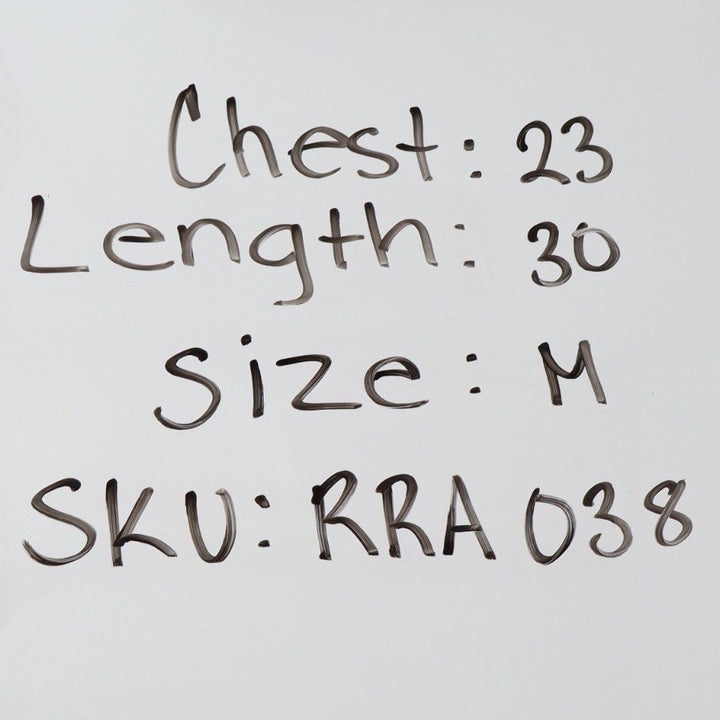 Chest: 23
Length: 30
Size: M
SKU: RRA 038